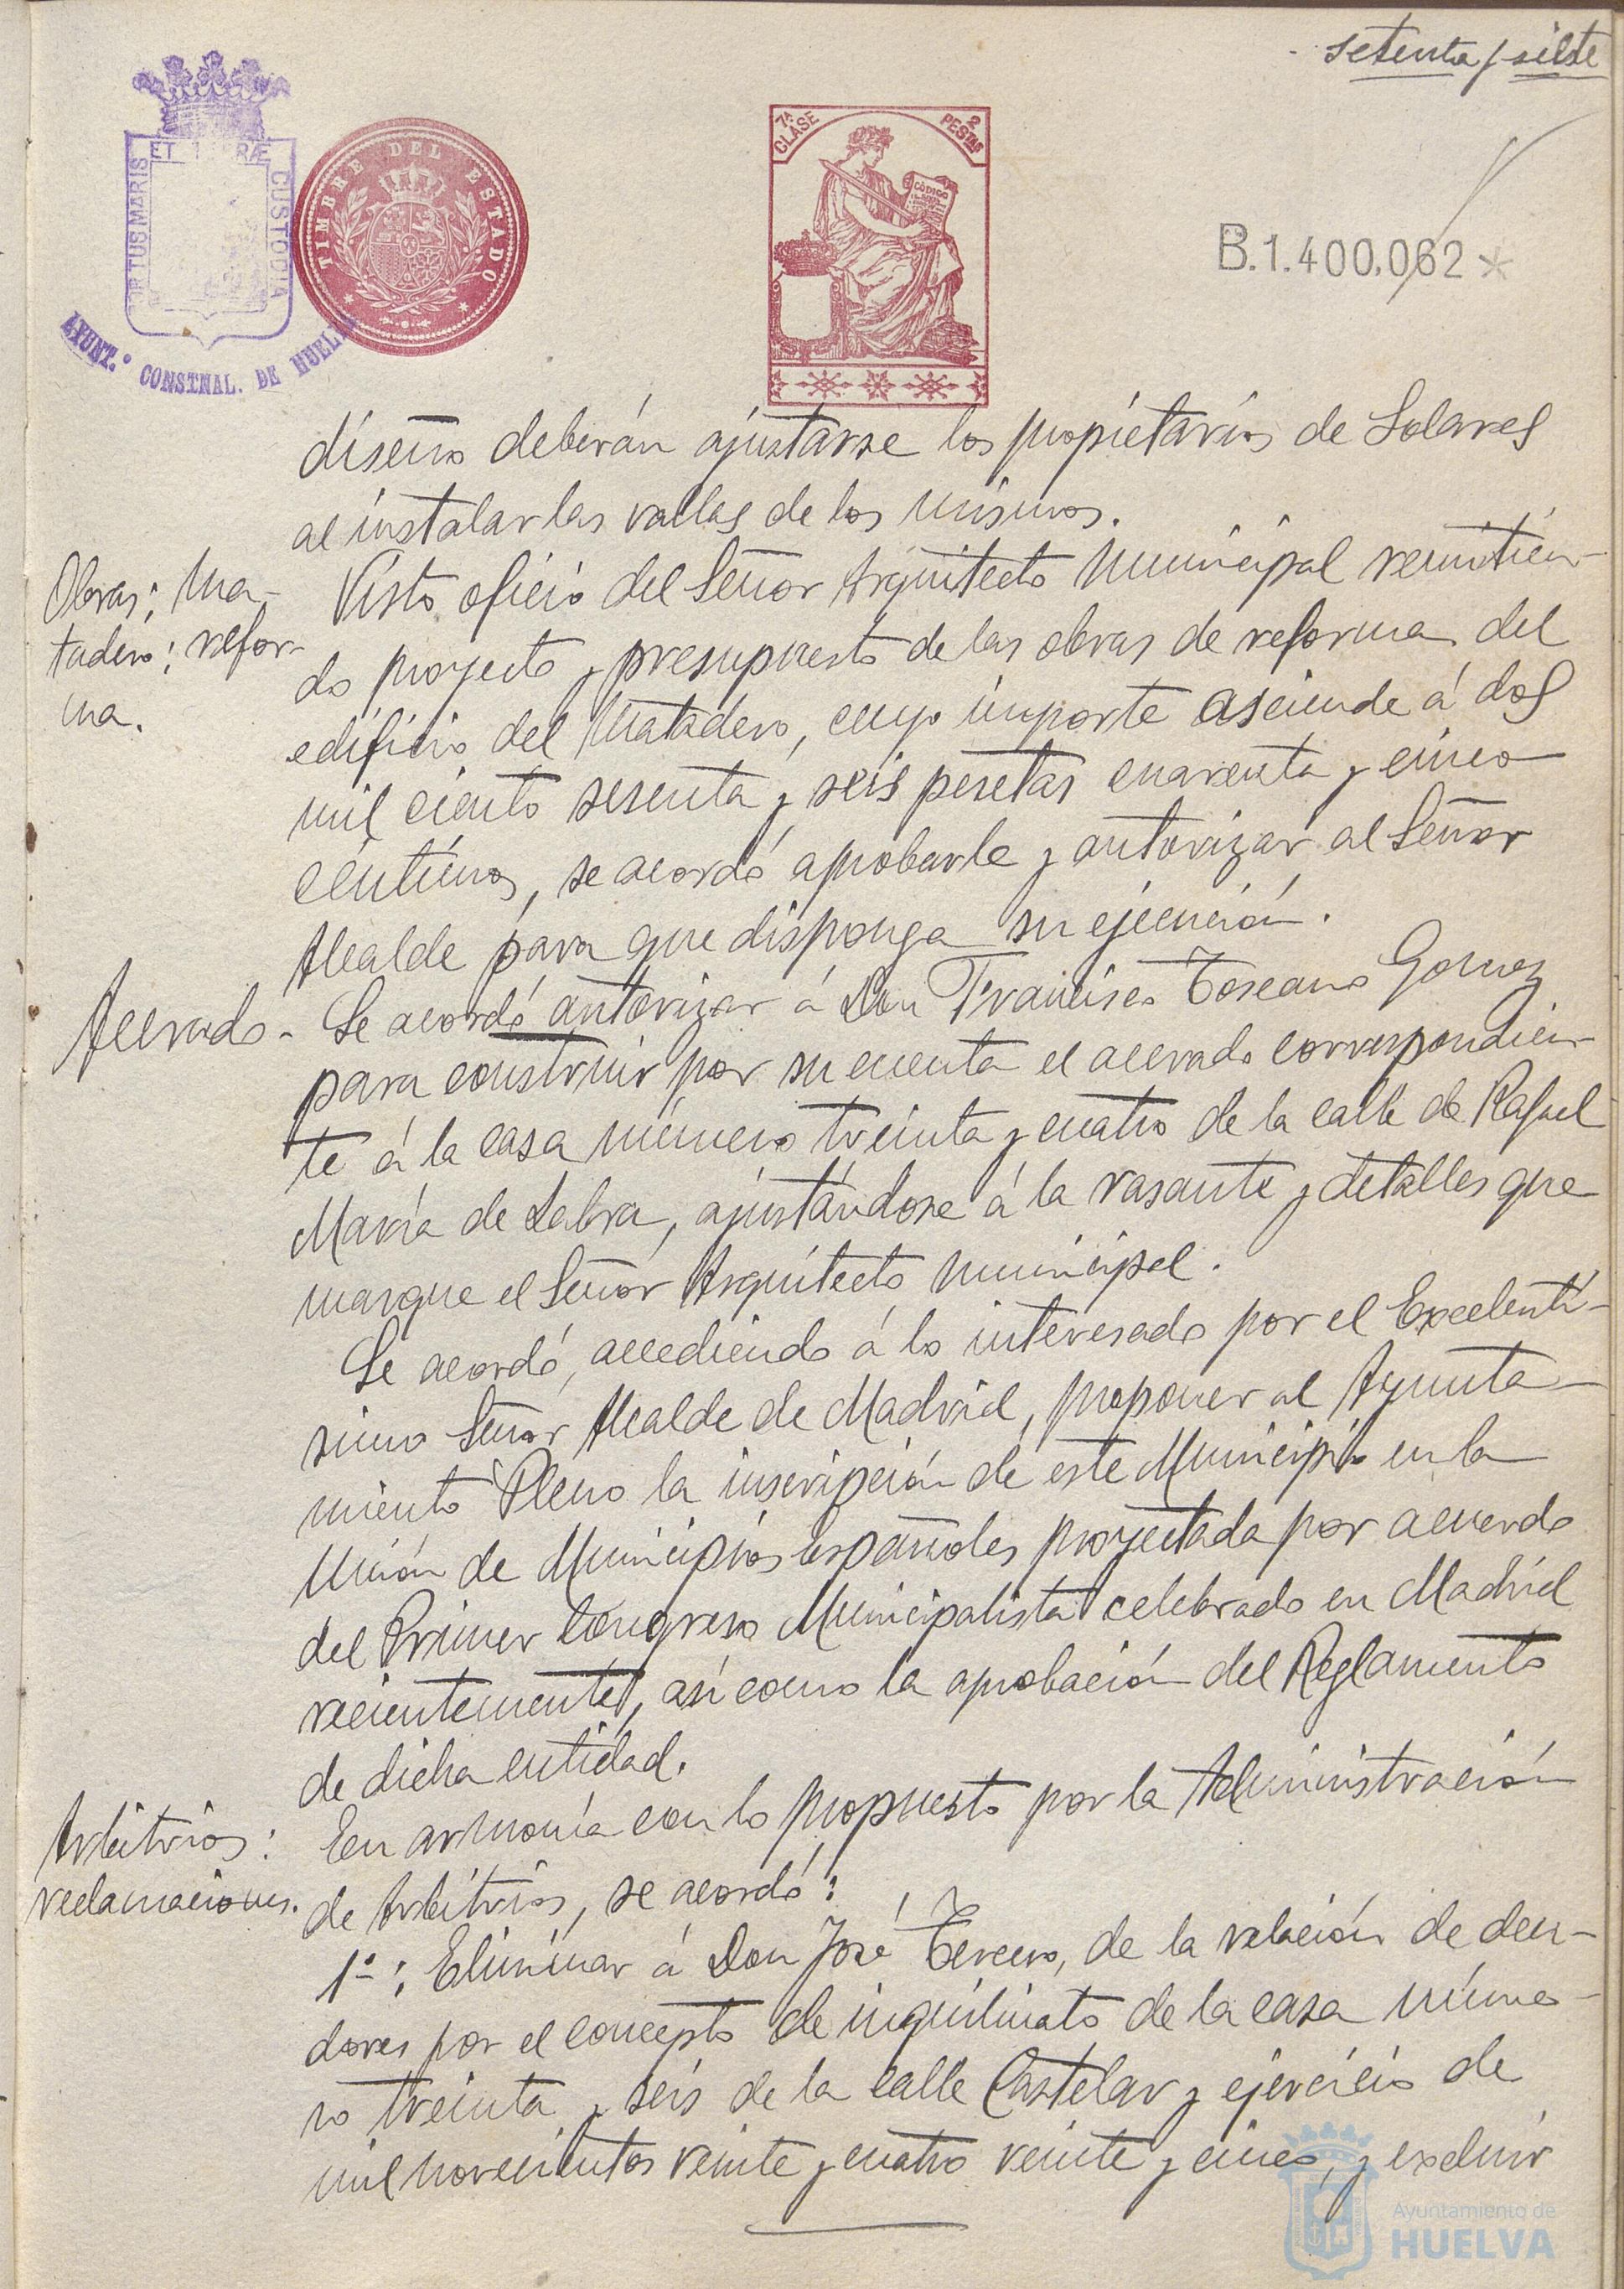 setenta y siete
PORTUS MARIS
ET TERRÆ
CUSTODIA
AYUNT.º CONSTNAL. DE HUELVA
TIMBRE DEL ESTADO
7ª CLASE
2 PESTAS
CÓDIGO
B.1.400.062*
diseño deberán ajustarse los propietarios de Solares
al instalar las vallas de los mismos.
Obras: Ma-
tadero: refor-
ma.
Visto oficio del Señor Arquitecto Municipal remitien-
do proyecto y presupuesto de las obras de reforma del
edificio del Matadero, cuyo importe asciende á dos
mil ciento sesenta y seis pesetas cuarenta y cinco
céntimos, se acordó aprobarle y autorizar al Señor
Alcalde para que disponga su ejecución.
Acerado-
Se acordó autorizar á Don Francisco Toscano Gomez
para construir por su cuenta el acerado correspondien-
te á la casa número treinta y cuatro de la calle de Rafael
María de Labra, ajustándose á la rasante y detalles que
marque el Señor Arquitecto Municipal.
Se acordó, accediendo á lo interesado por el Excelentí-
simo Señor Alcalde de Madrid, proponer al Ayunta-
miento Pleno la inscripción de este Municipio en la
Unión de Municipios Españoles proyectada por acuerdo
del Primer Congreso Municipalista celebrado en Madrid
recientemente, así como la aprobación del Reglamento
de dicha entidad.
Arbitrios:
reclamaciones.
En armonía con lo propuesto por la Administración
de Arbitrios, se acordó:
1º: Eliminar á Don José Tercero, de la relación de deu-
dores por el concepto de inquilinato de la casa núme-
ro treinta y seis de la calle Castelar y ejercicio de
mil novecientos veinte y cuatro veinte y cinco, y excluir
Ayuntamiento de
HUELVA